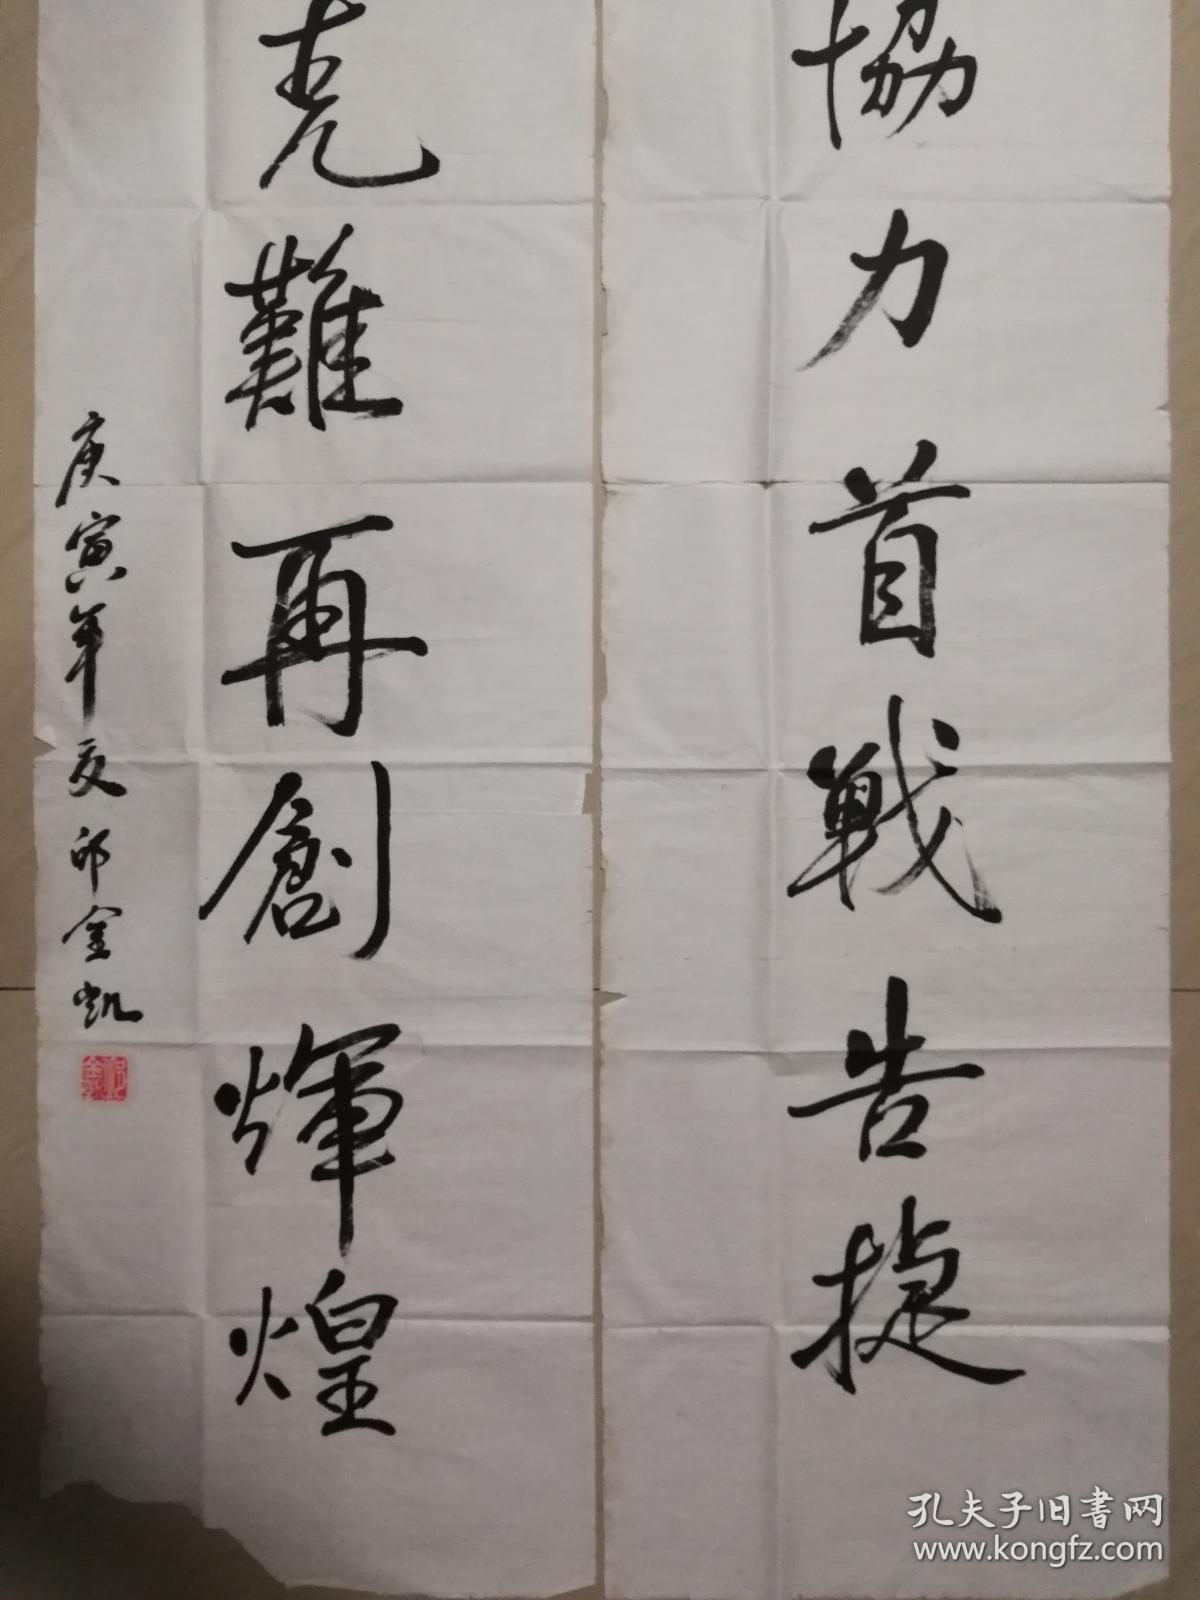 協力首戰告捷
克難再創輝煌
庚寅年夏邱金凯
孔夫子旧書网
www.kongfz.com